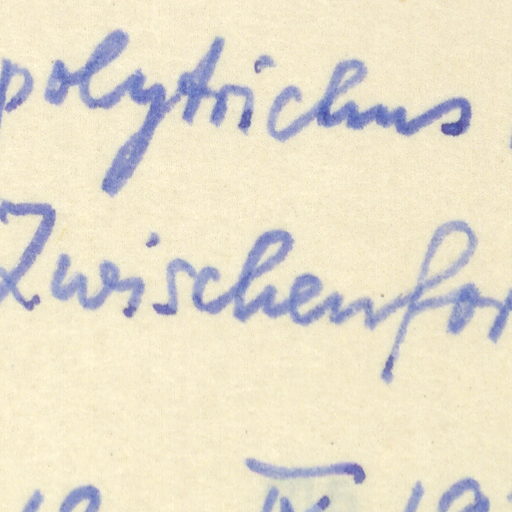 polytrichus
Zwischenfor